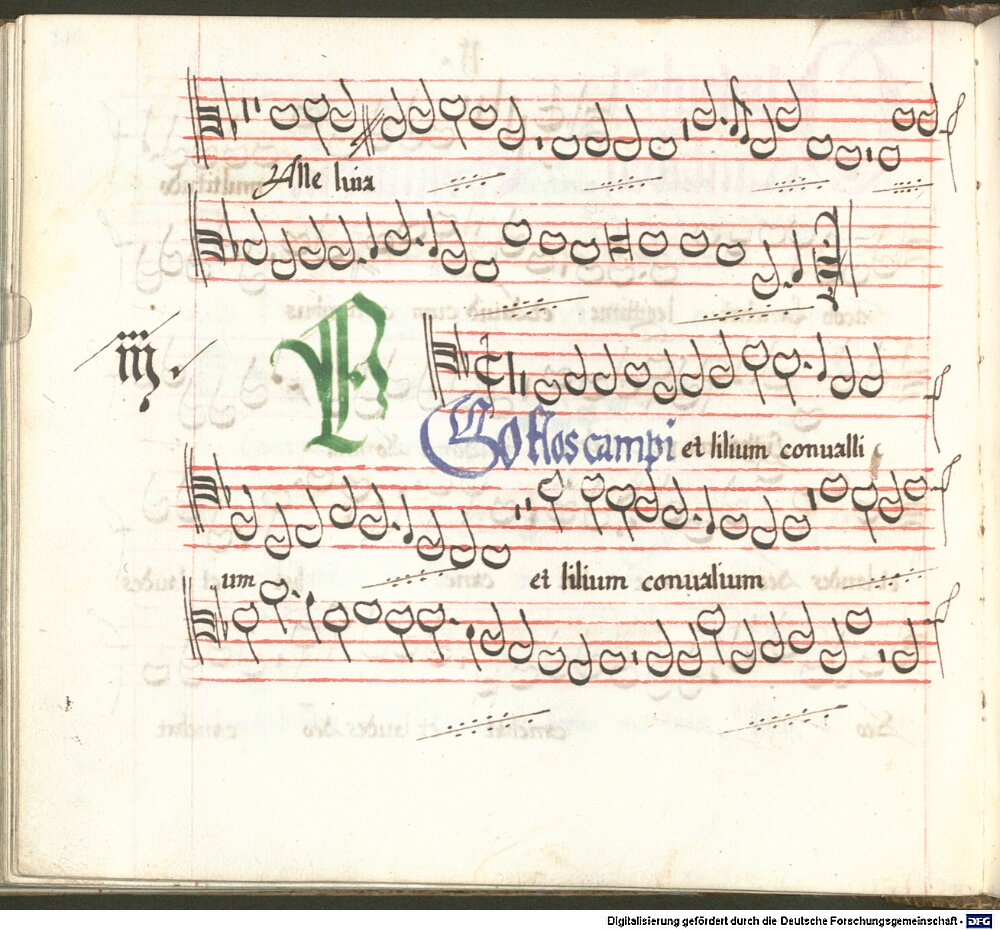 Alle luia
iiij.
Ego flos campi et lilium conualli
um et lilium conualium
Digitalisierung gefördert durch die Deutsche Forschungsgemeinschaft - DFG